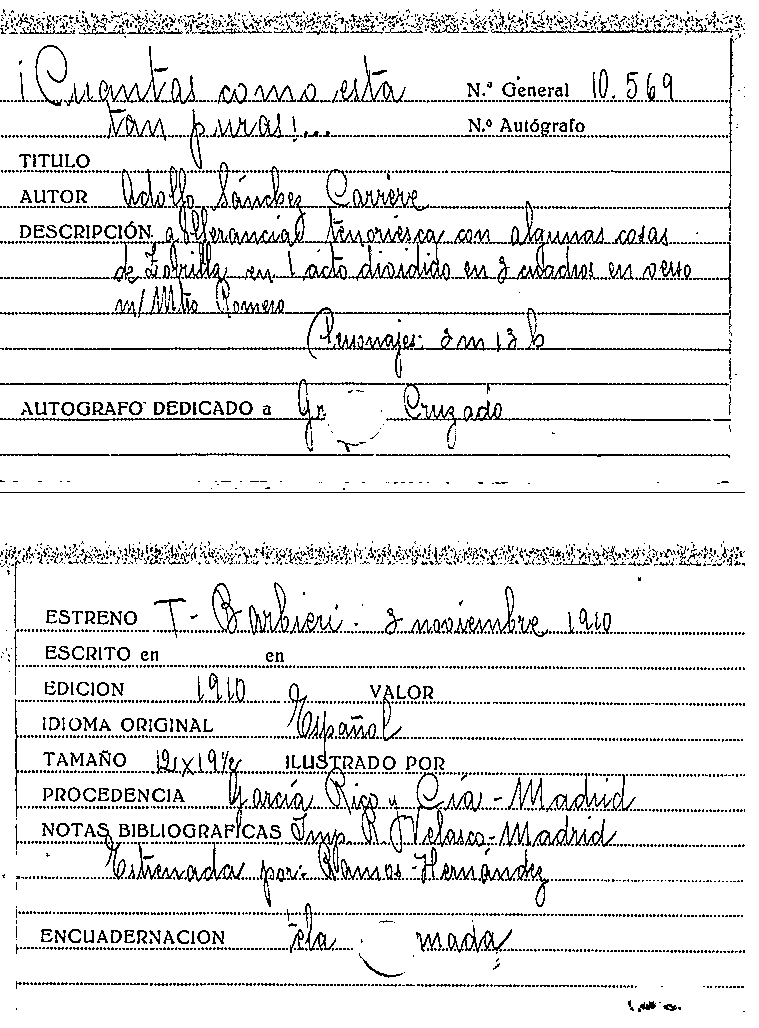 ¡Cuantas como esta N.º General 10.569
tan puras!... N.º Autógrafo
TITULO
AUTOR Adolfo Sánchez Carrère
DESCRIPCIÓN tenoriesca con algunas cosas
de Zorrilla en 1 acto dividido en 3 cuadros en verso
m/ Mtro Romero
Personajes: 3 m 13 h
AUTOGRAFO DEDICADO a Cruzado
ESTRENO T- Barbieri. 3 noviembre 1910
ESCRITO en en
EDICION 1910 VALOR
IDIOMA ORIGINAL Español
TAMAÑO ILUSTRADO POR
PROCEDENCIA García Rico y Cía - Madrid
NOTAS BIBLIOGRAFICAS Imp. R. Velasco - Madrid
Estrenada por: Ramos-Hernández
ENCUADERNACION Tela mada